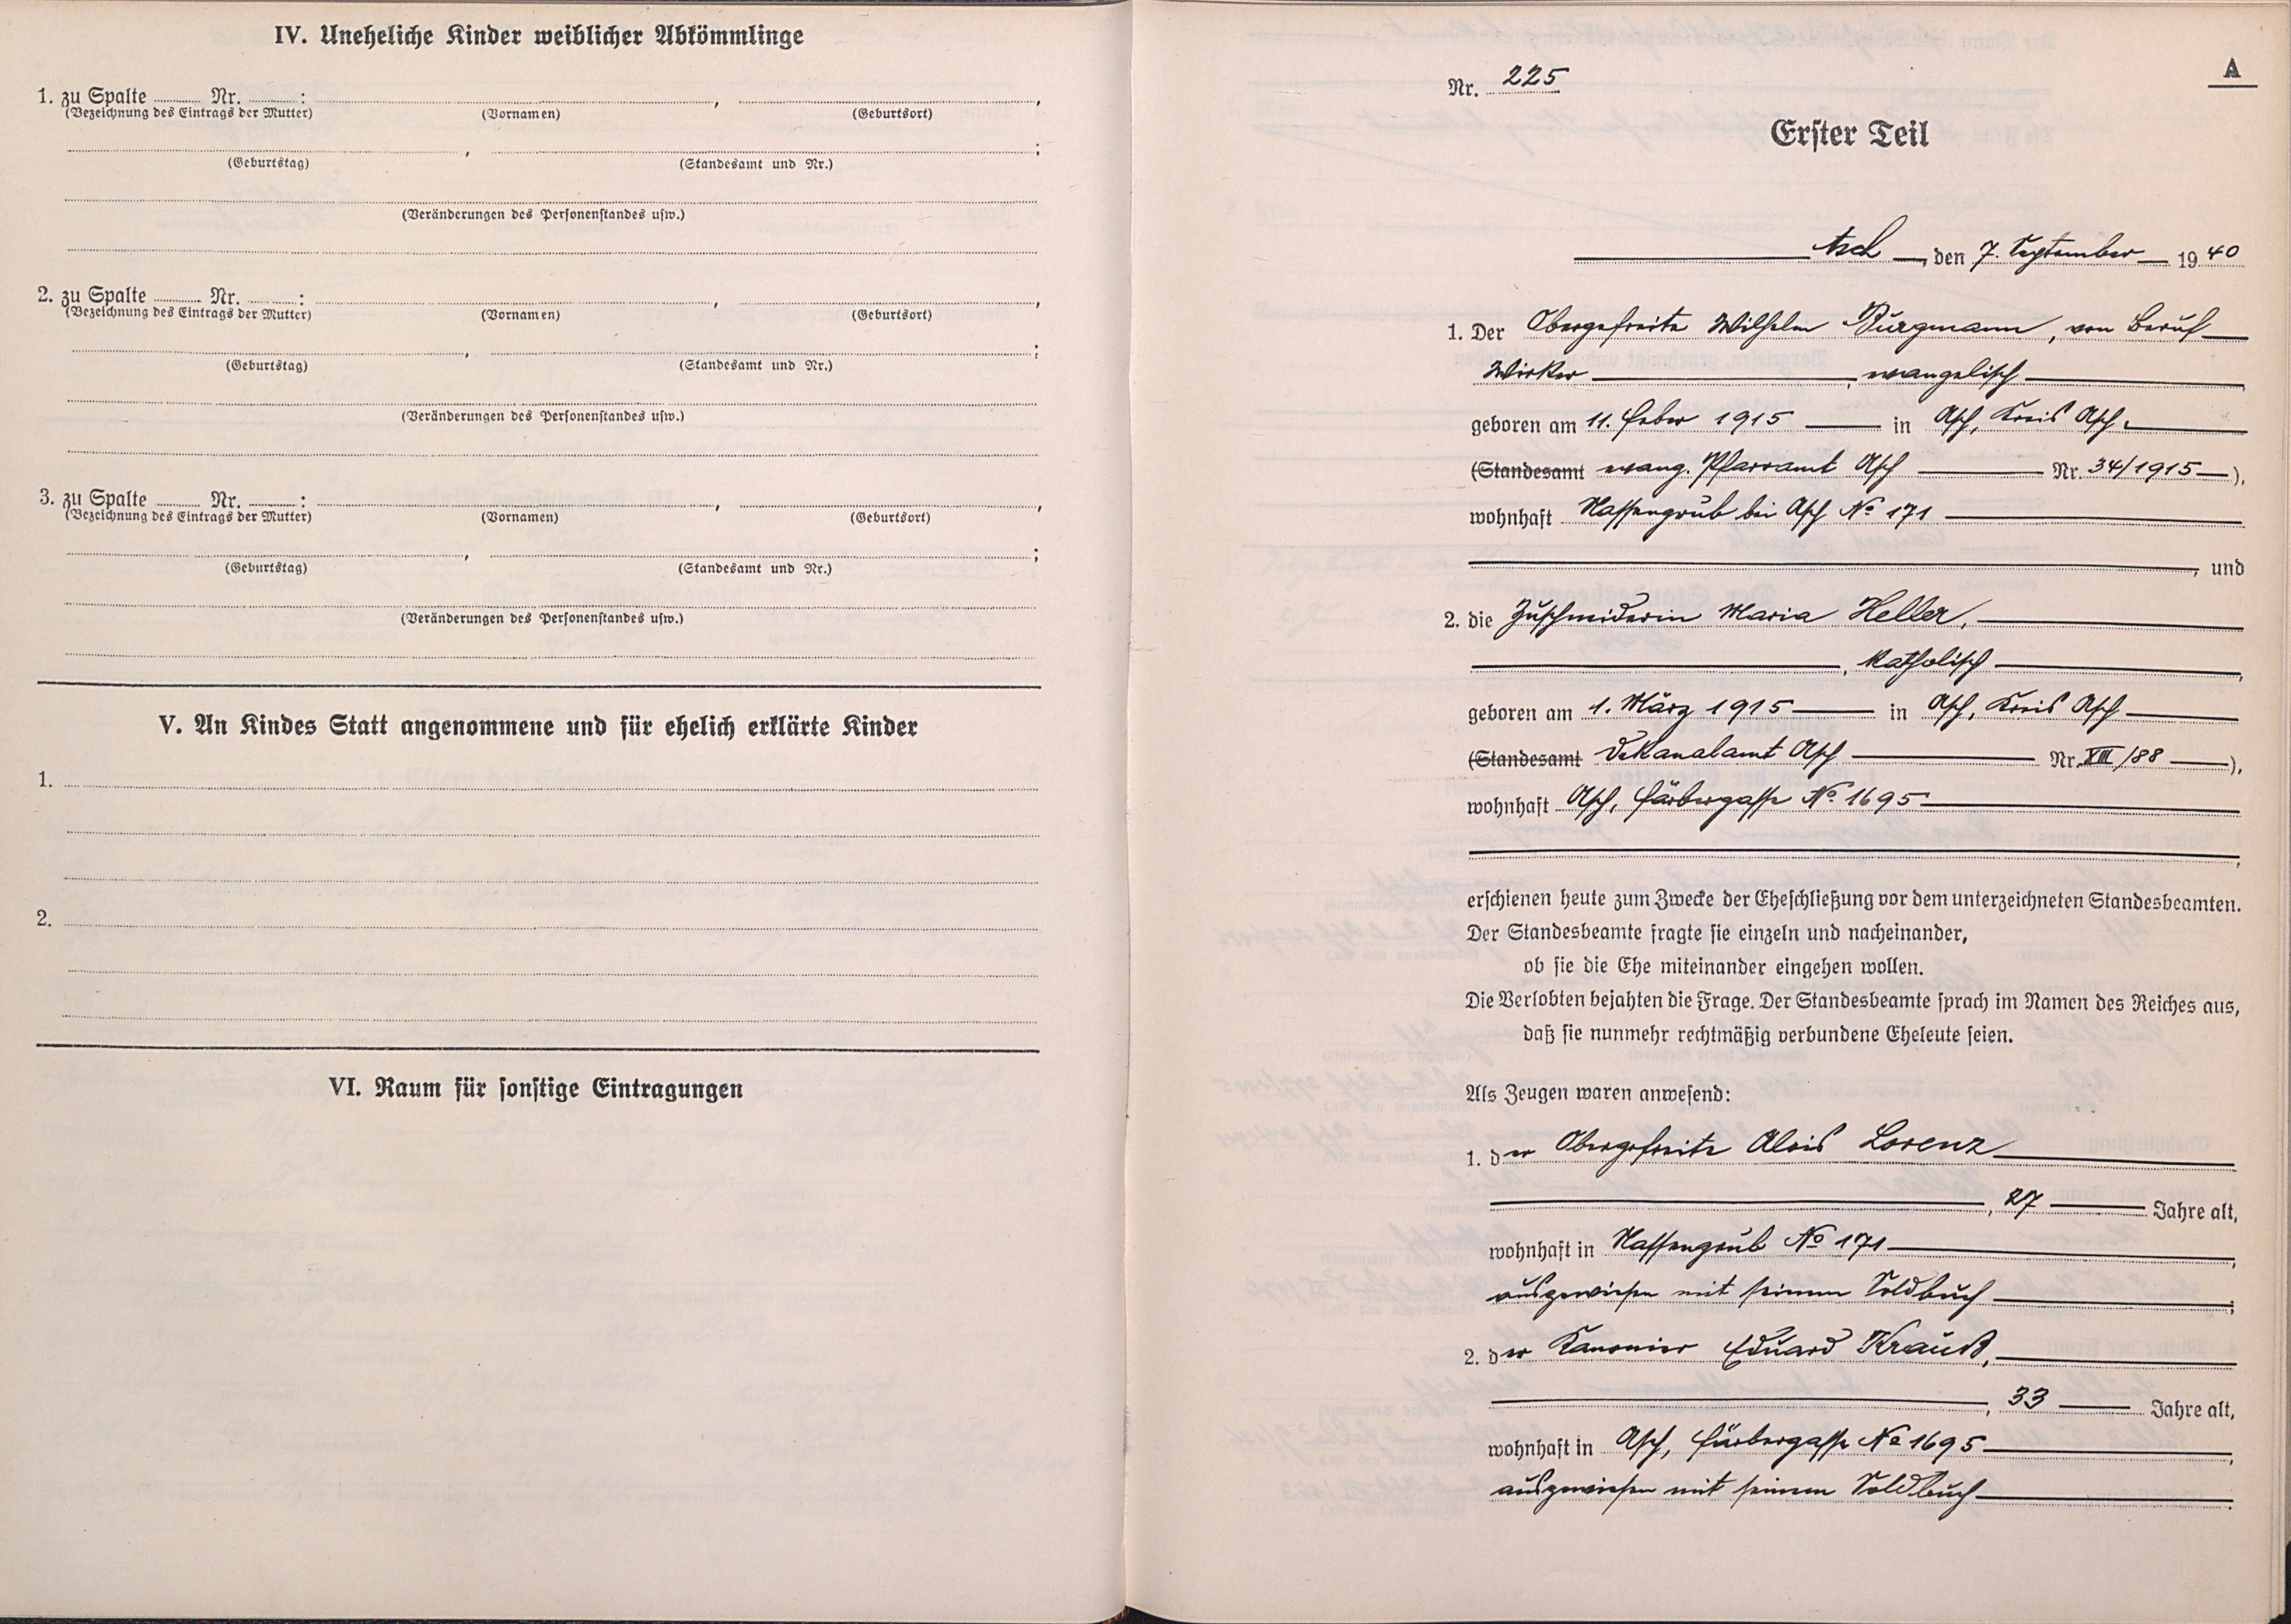 IV. Uneheliche Kinder weiblicher Abkömmlinge
1. zu Spalte ........ Nr. ........ : ........ , ........ ,
(Bezeichnung des Eintrags der Mutter) (Vornamen) (Geburtsort)
........ , ........ ;
(Geburtstag) (Standesamt und Nr.)
(Veränderungen des Personenstandes usw.)
2. zu Spalte ........ Nr. ........ : ........ , ........ ,
(Bezeichnung des Eintrags der Mutter) (Vornamen) (Geburtsort)
........ , ........ ;
(Geburtstag) (Standesamt und Nr.)
(Veränderungen des Personenstandes usw.)
3. zu Spalte ........ Nr. ........ : ........ , ........ ,
(Bezeichnung des Eintrags der Mutter) (Vornamen) (Geburtsort)
........ , ........ ;
(Geburtstag) (Standesamt und Nr.)
(Veränderungen des Personenstandes usw.)
V. An Kindes Statt angenommene und für ehelich erklärte Kinder
1.
2.
VI. Raum für sonstige Eintragungen
A
Nr. 225
Erster Teil
Asch, den 7. September 1940
1. Der Obergefreite Wilhelm Burgmann, von Beruf
Wirker, evangelisch,
geboren am 11. Feber 1915 in Asch, Kreis Asch.
(Standesamt evang. Pfarramt Asch Nr. 34/1915),
wohnhaft Nassengrub bei Asch No 171
, und
2. die Zuschneiderin Maria Heller,
, katholisch,
geboren am 1. März 1915 in Asch, Kreis Asch
(Standesamt Dekanalamt Asch Nr. XIII/88),
wohnhaft Asch, Färbergasse No 1695
,
erschienen heute zum Zwecke der Eheschließung vor dem unterzeichneten Standesbeamten.
Der Standesbeamte fragte sie einzeln und nacheinander,
ob sie die Ehe miteinander eingehen wollen.
Die Verlobten bejahten die Frage. Der Standesbeamte sprach im Namen des Reiches aus,
daß sie nunmehr rechtmäßig verbundene Eheleute seien.
Als Zeugen waren anwesend:
1. der Obergefreite Alois Lorenz
, 27 Jahre alt,
wohnhaft in Nassengrub No 171,
ausgewiesen mit seinem Soldbuch;
2. der Kanonier Eduard Krauß,
, 33 Jahre alt,
wohnhaft in Asch, Färbergasse No 1695,
ausgewiesen mit seinem Soldbuch.